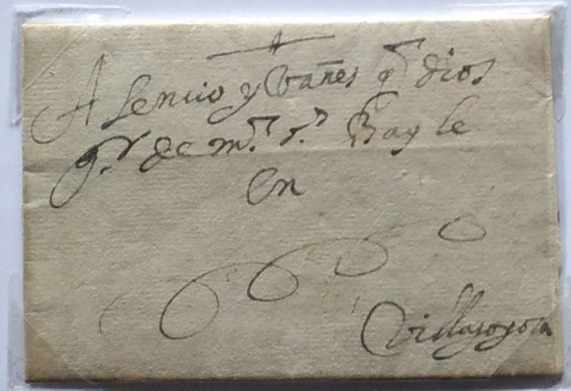 A Senuio yVañes q.e dios
g.de de m.s a.s Bayle
en
Villajoyosa